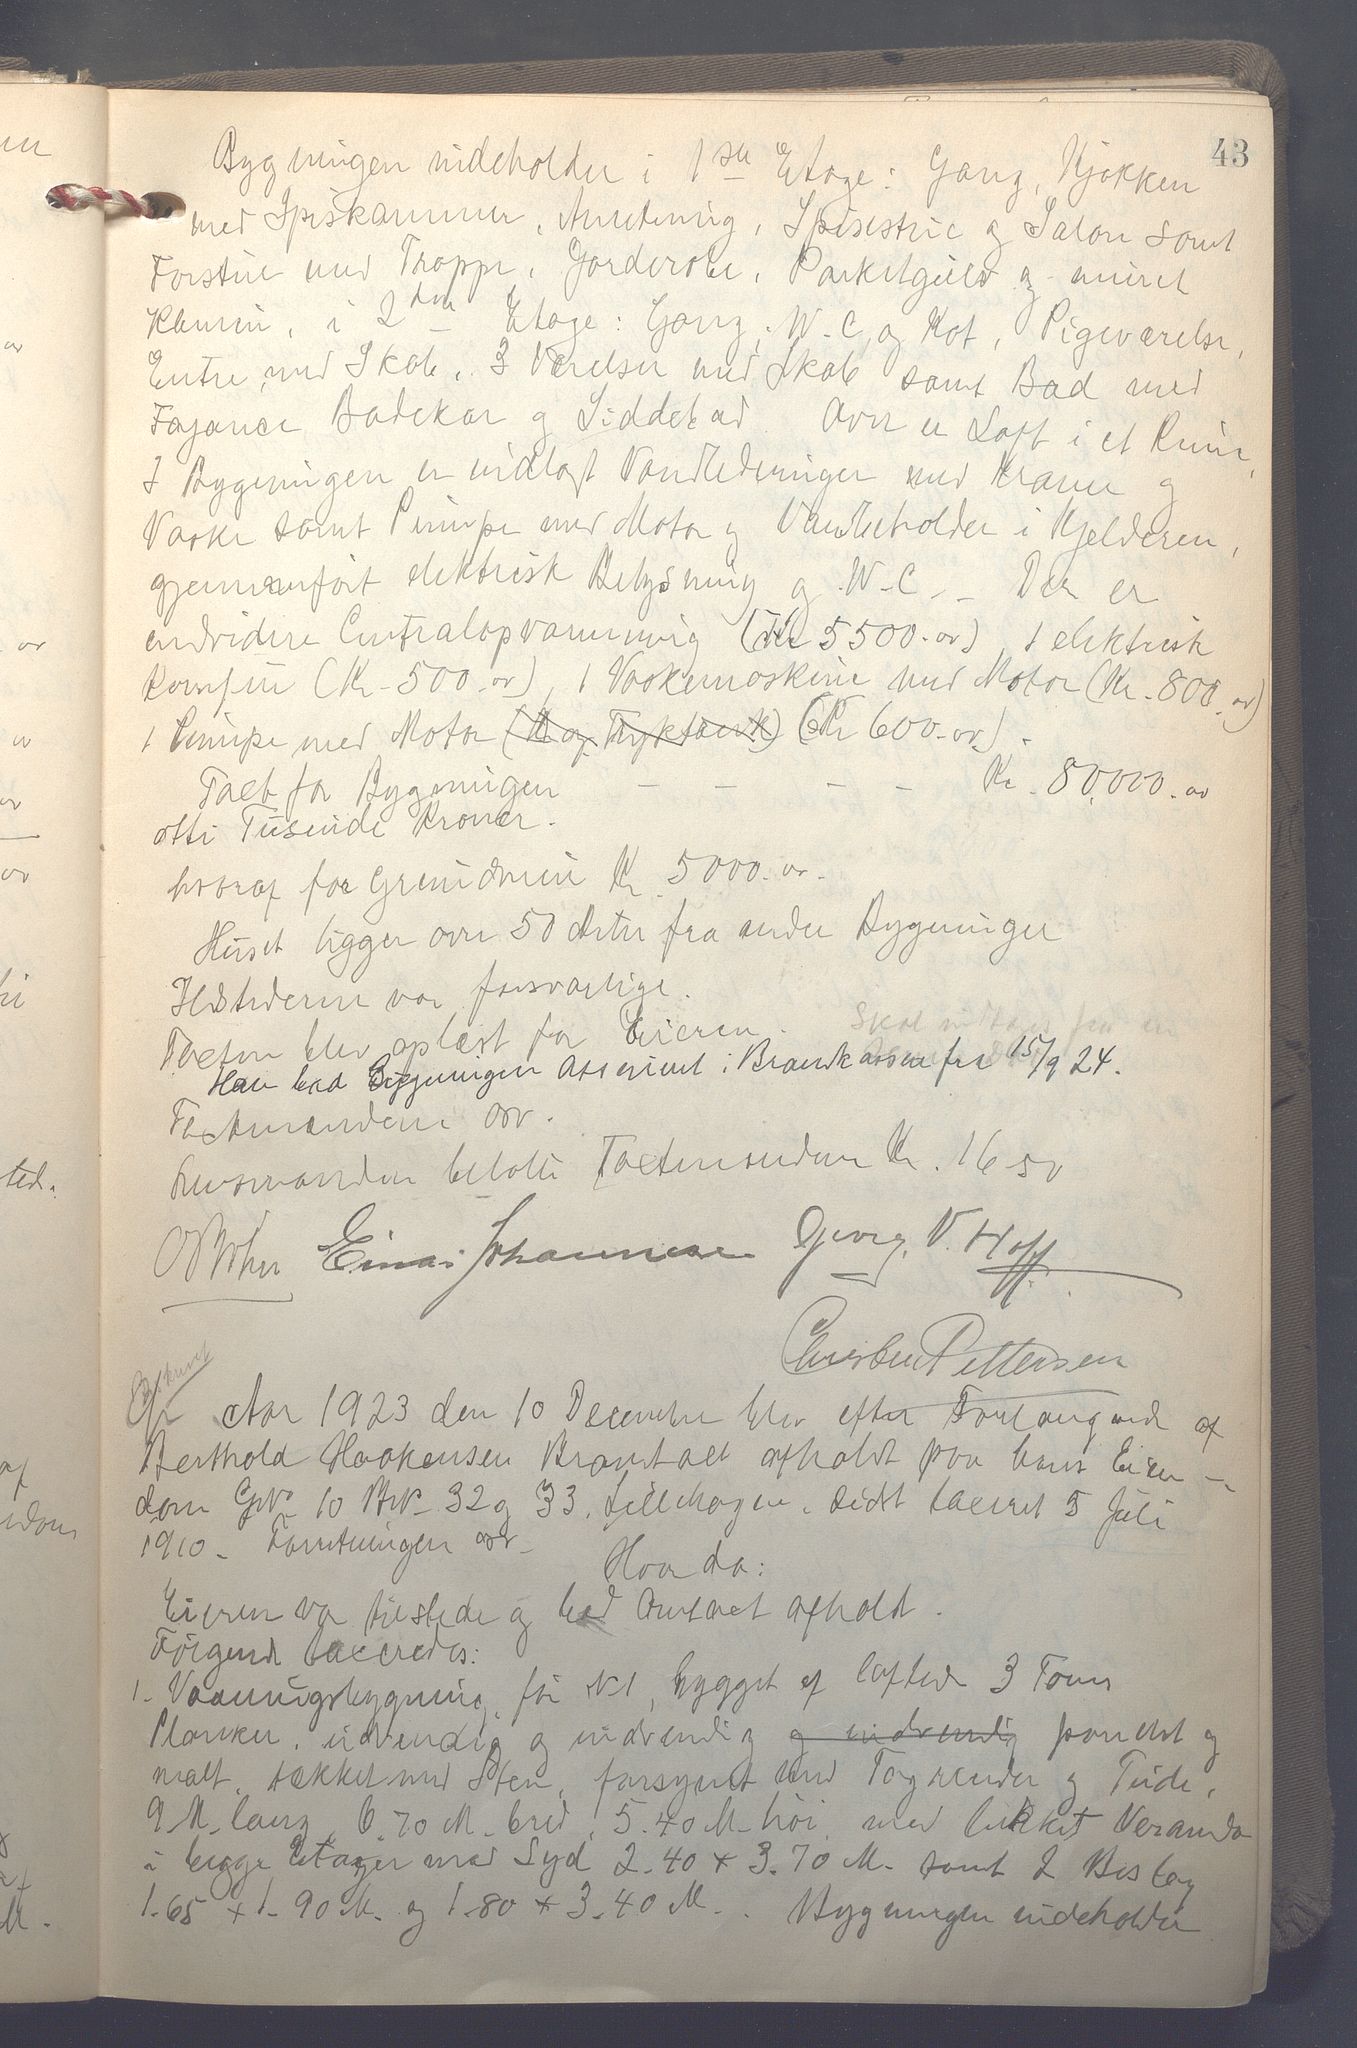 43
Bygningen indeholder i 1ste Etage: Gang, Kjøkken
med Spiskammer, Anretning, Spisestue og Salon samt
Forstue med Trappe, Garderobe, Parketgulv og muret
Kamin, i 2den Etage: Gang, W.C. og Kot, Pigeværelse,
Entre med Skab, 3 Værelser med Skab samt Bad med
Fajance Badekar og Siddebad. Over er Loft i et Rum,
I Bygningen er indlagt Vandledninger med Kraner og
Vaske samt Pumpe med Motor og Vandbeholder i Kjelderen,
gjennemført elektrisk Belysning og W-C. - Der er
endvidere Centralopvarmning (Kr 5500.00), 1 elektrisk
Komfur (Kr. 500.00), 1 Vaskemaskine med Motor (Kr. 800.00)
1 Pumpe med Motor (Kr 600.00).
Taxt for Bygningen - - - - Kr. 80,000.00
otti Tusende Kroner.
hvoraf for Grundmur Kr. 5000.00.
Huset ligger over 50 Meter fra andre Bygninger
Ildstederne var forsvarlige.
Taxten blev oplæst for Eieren.
Skal indtages fra
Han bad Bygningen assurert i Brandkassen fra 15/9 24.
Taxtmændene
Lensmanden betalte Taxtmændene Kr. 16-50
Einar Johannesen Georg. V. Hoff
Christen Pettersen
Udskrevet
Aar 1923 den 10 December blev efter Forlangende af
Berthold Haakensen Brandtaxt afholdt paa hans Eien-
dom Gno 10 Bno 32 og 33, Lillehagen, sidst taxeret 5 Juli
1910. Forretningen
Hvorda:
Eieren var tilstede og bad Omtaxt afholdt.
Følgende taxeredes:
1. Vaaningsbygning, før No 1, bygget af laftede 3 Toms
Planker, udvendig og indvendig og indvendig panelet og
malt, tækket med Sten, forsynet med Tagrender og Nedløb,
9 M. lang, 6.70 M. bred, 5.40 M. høi, med lukket Veranda
i begge Etager mod Syd 2.40 x 3.70 M. samt 2 Bislag
1.65 x 1.90 M. og 1.80 x 3.40 M. . Bygningen indeholder